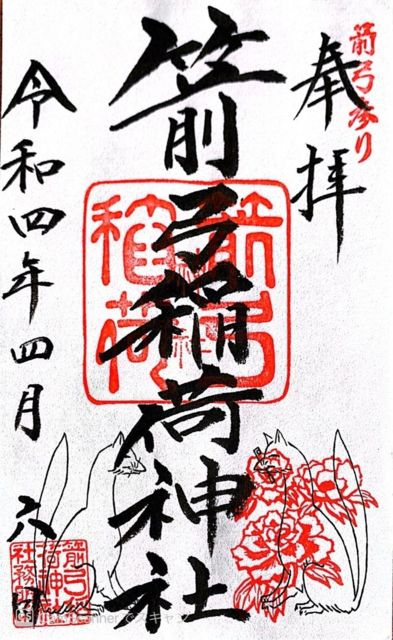 箭弓まつり
奉拝
箭弓稲荷神社
箭弓稲荷
令和四年四月六日
箭弓稲荷神社社務所印